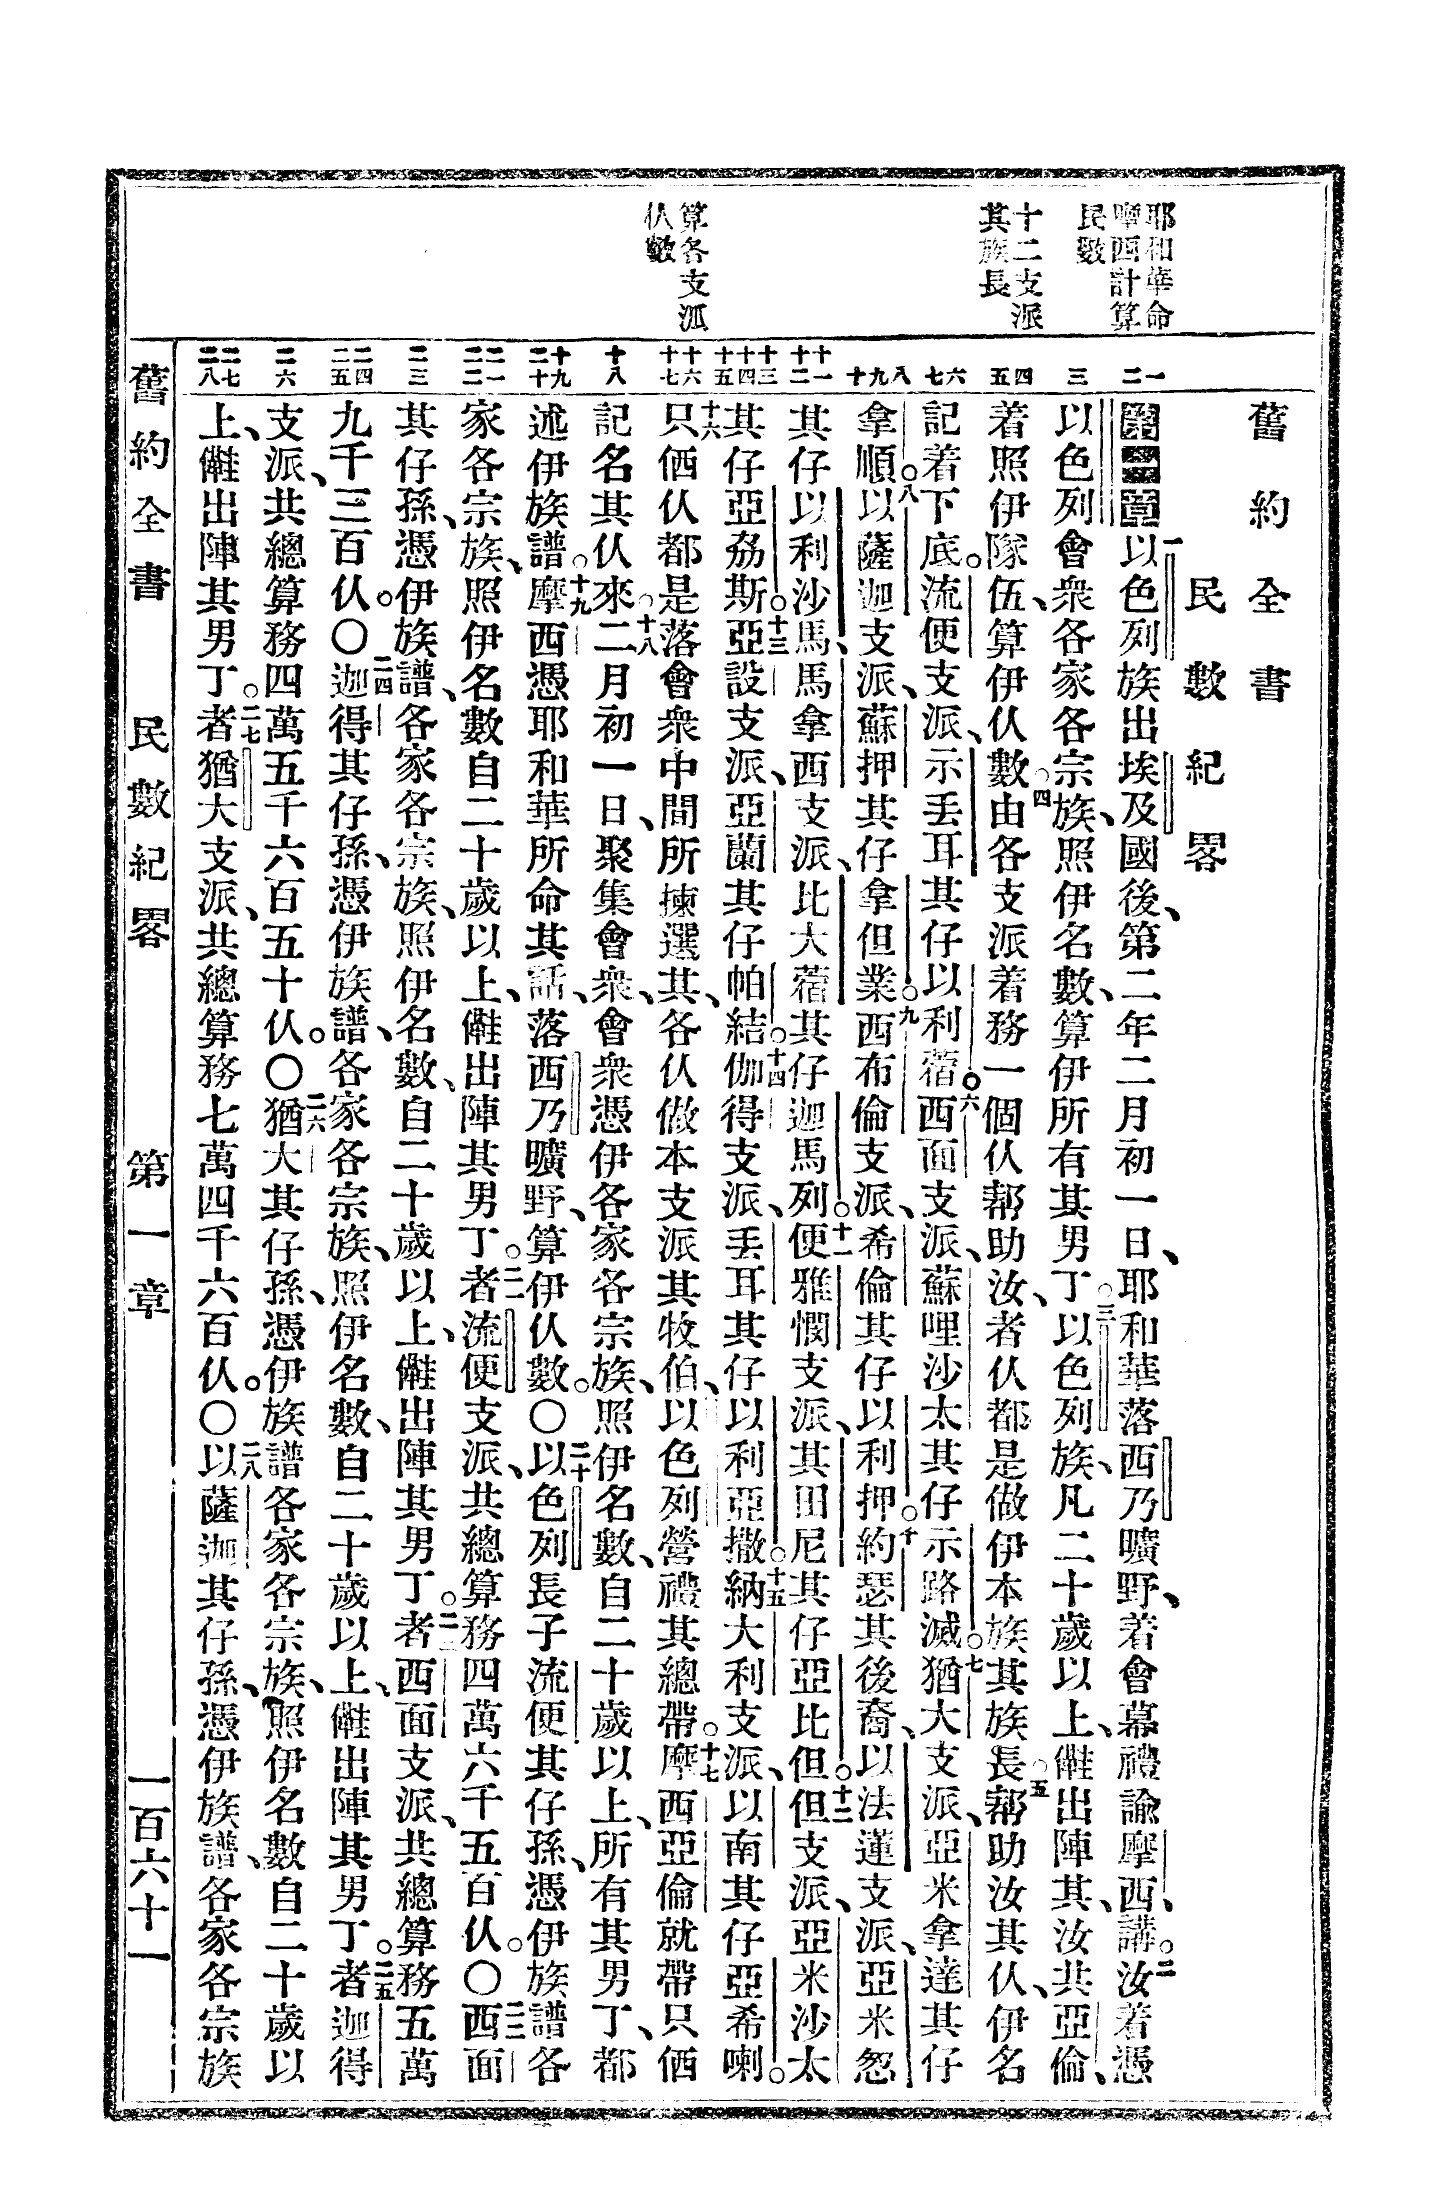 耶和華命
摩西計算
民數
十二支派
其族長
算各支派
仈數
一
二
三
四
五
六
七
八
九
十
十一
十二
十三
十四
十五
十六
十七
十八
十九
二十
二一
二二
二三
二四
二五
二六
二七
二八
舊約全書
民數紀畧
第一章以色列族出埃及國後、第二年二月初一日、耶和華落西乃曠野、着會幕禮諭摩西、講。汝着憑
以色列會衆各家各宗族、照伊名數、算伊所有其男丁。以色列族、凡二十歲以上、儺出陣其、汝共亞倫、
着照伊隊伍、算伊仈數。由各支派着務一個仈幫助汝、者仈都是做伊本族其族長。幫助汝其仈、伊名
記着下底。流便支派、示丟耳其仔以利蓿。西面支派、蘇哩沙太其仔示路滅。猶大支派、亞米拿達其仔
拿順。以薩迦支派、蘇押其仔拿但業。西布倫支派、希倫其仔以利押。約瑟其後裔、以法蓮支派、亞米忽
其仔以利沙馬、馬拿西支派、比大蓿其仔迦馬列。便雅憫支派、其田尼其仔亞比但。但支派、亞米沙太
其仔亞劦斯。亞設支派、亞蘭其仔帕結伽。得支派、丟耳其仔以利亞撒。納大利支派、以南其仔亞希喇。
只酒仈都是落會衆中間所揀選其、各仈做本支派其牧伯、以色列營禮其總帶。摩西亞倫就帶只酒
記名其仈來。二月初一日、聚集會衆、會衆憑伊各家各宗族、照伊名數、自二十歲以上、所有其男丁、都
述伊族譜。摩西憑耶和華所命其話、落西乃曠野、算伊仈數。〇以色列長子流便其仔孫、憑伊族譜各
家各宗族、照伊名數自二十歲以上、儺出陣其男丁。者流便支派、共總算務四萬六千五百仈。〇西面
其仔孫、憑伊族譜、各家各宗族、照伊名數、自二十歲以上、儺出陣其男丁。者西面支派、共總算務五萬
九千三百仈。〇迦得其仔孫、憑伊族譜、各家各宗族、照伊名數、自二十歲以上、儺出陣其男丁。者迦得
支派、共總算務四萬五千六百五十仈。〇猶大其仔孫、憑伊族譜各家各宗族、照伊名數自二十歲以
上、儺出陣其男丁。者猶大支派、共總算務七萬四千六百仈。〇以薩迦其仔孫、憑伊族譜、各家各宗族
舊約全書 民數紀畧 第一章 一百六十一